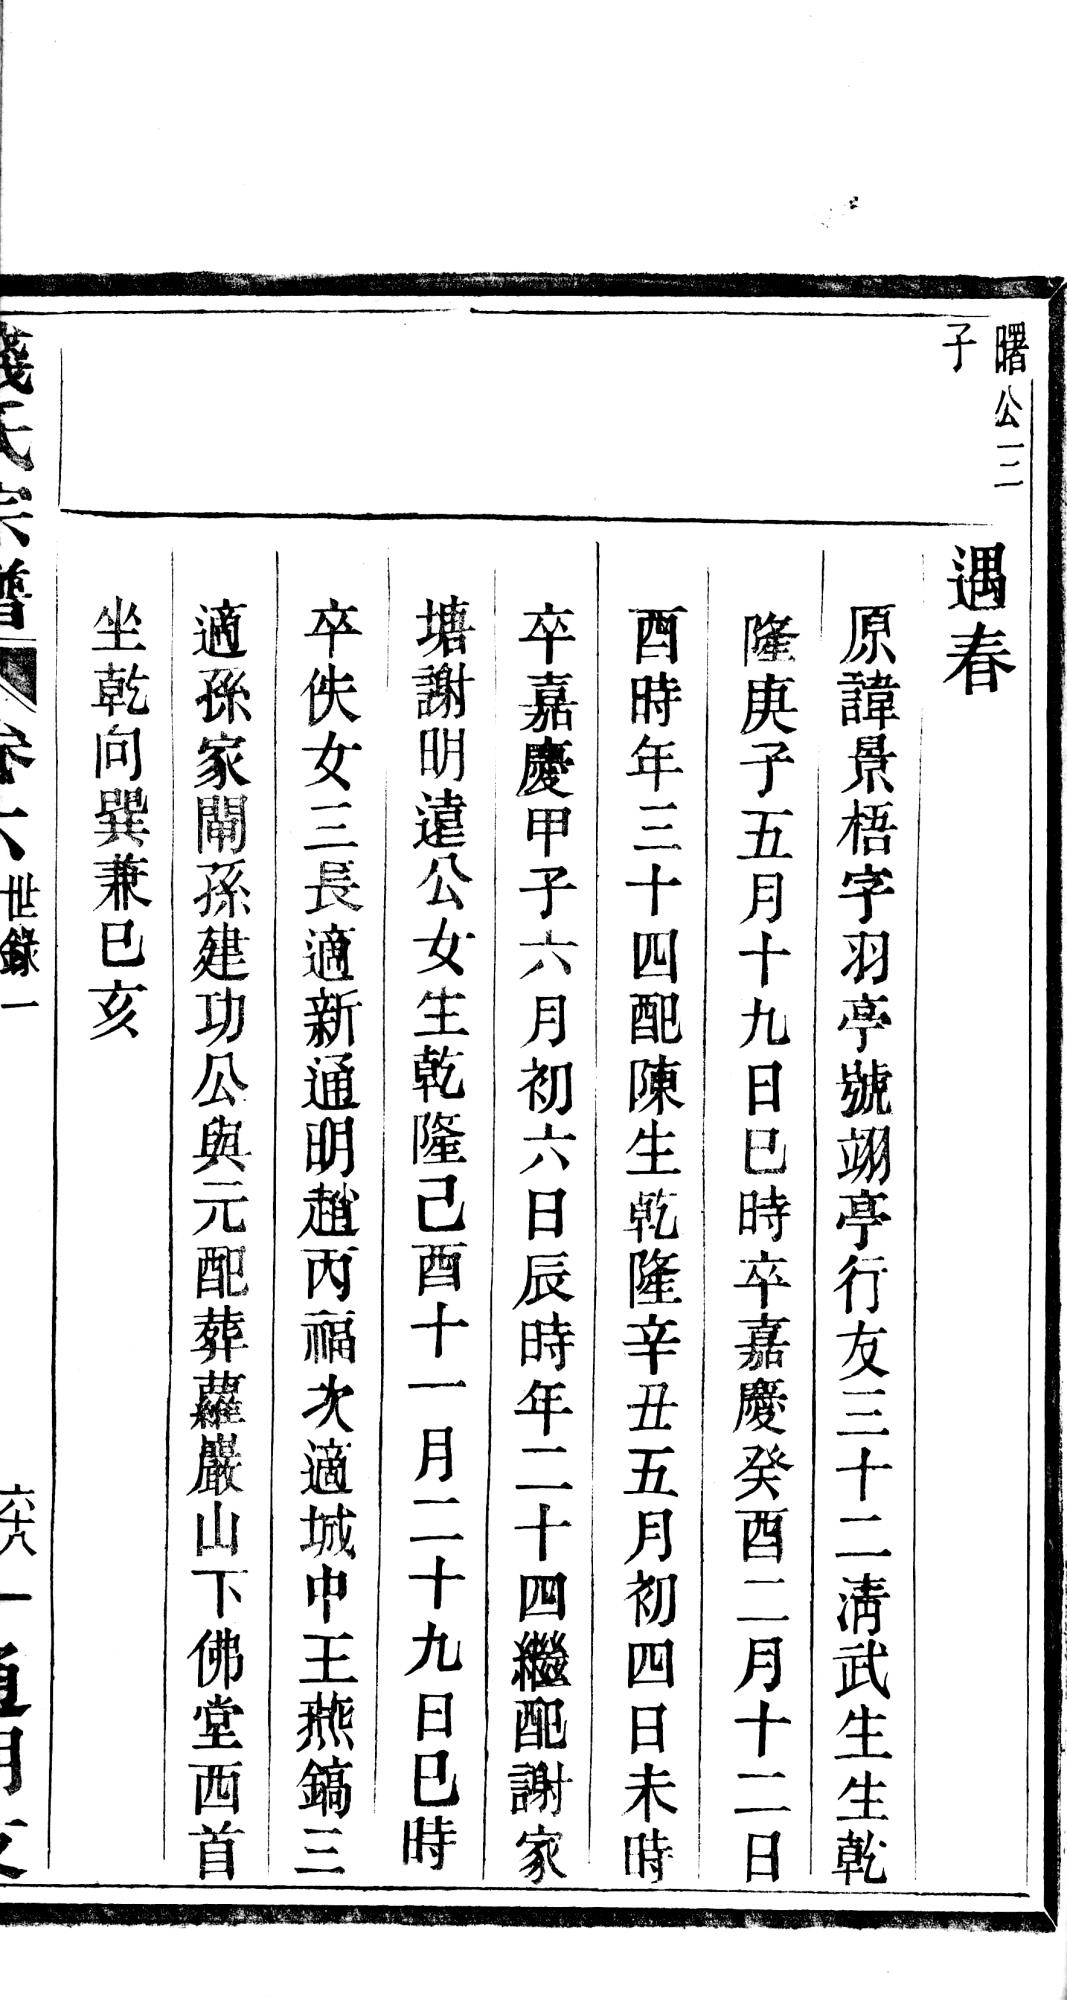 曙公二
子
遇春
原諱景梧字羽亭號翊亭行友三十二淸武生生乾
隆庚子五月十九日巳時卒嘉慶癸酉二月十二日
酉時年三十四配陳生乾隆辛丑五月初四日未時
卒嘉慶甲子六月初六日辰時年二十四繼配謝家
塘謝明遠公女生乾隆己酉十一月二十九日巳時
卒佚女三長適新通明趙丙福次適城中王燕鎬三
適孫家閘孫建功公與元配葬蘿巖山下佛堂西首
坐乾向巽兼巳亥
錢氏宗譜
卷六
世錄一
六十八
通明支